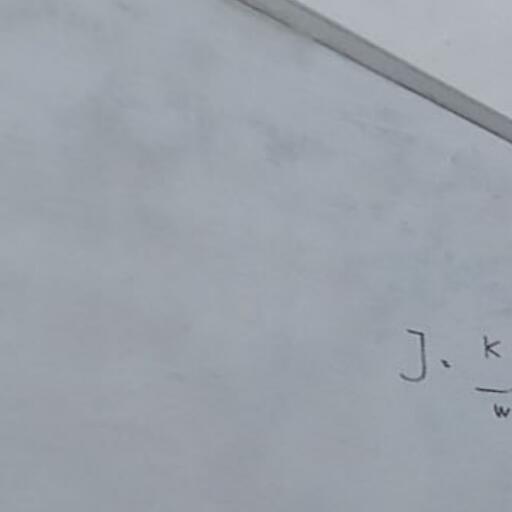 J. K
w